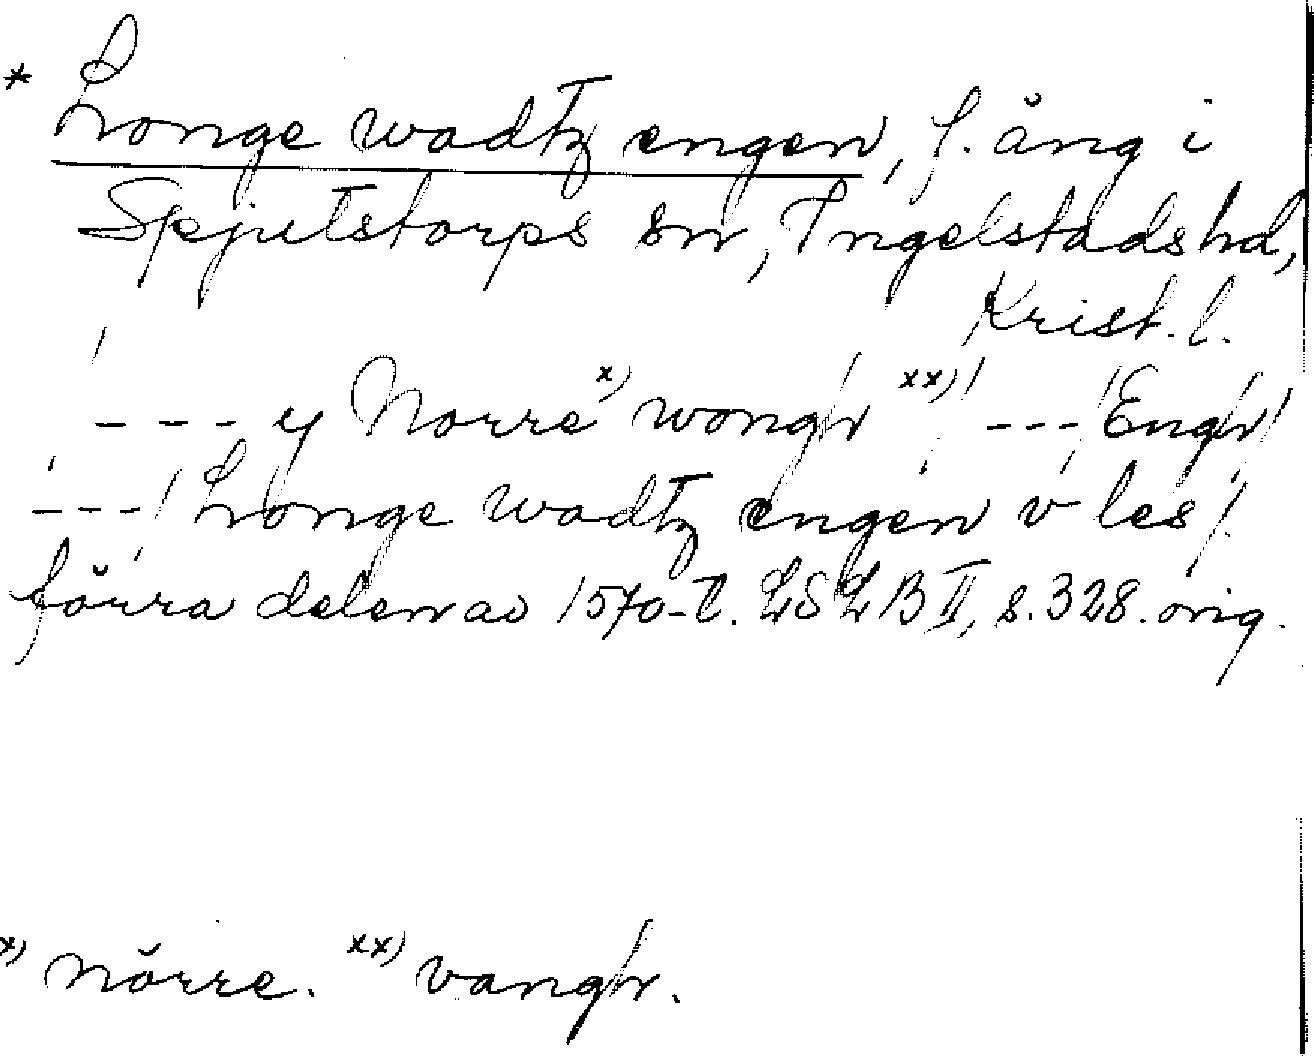 * Longe wadtz engen, f. äng i
Spjutstorps sn, Ingelstads hd,
Krist. l.
/ - - - y Norre x) wongh xx) / - - - / Engh /
- - - / Longe wadtz engen v les /.
förra delen av 1570-t. LSLB II, s. 328. orig.
x) nörre. xx) vangh.